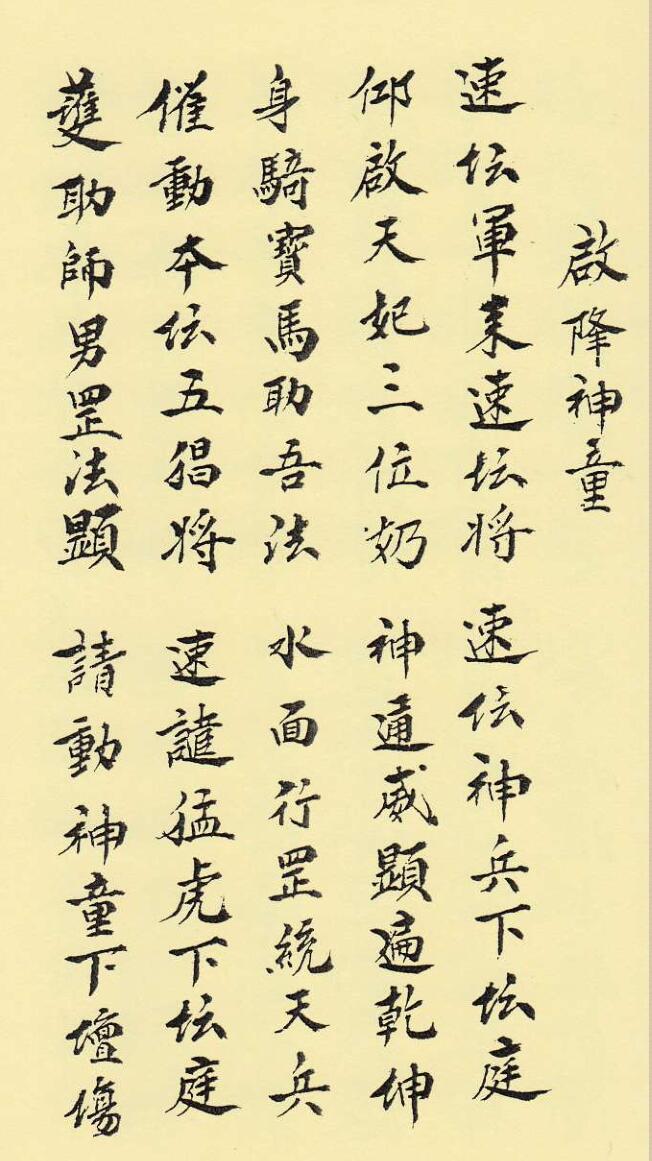 啟降神童
速坛軍来速坛将 速坛神兵下坛庭
仰啟天妃三位奶 神通威顯遍乾伸
身騎寶馬助吾法 水面行罡統天兵
催動本坛五猖将 速讙猛虎下坛庭
䕶助師男罡法顯 請動神童下壇傷